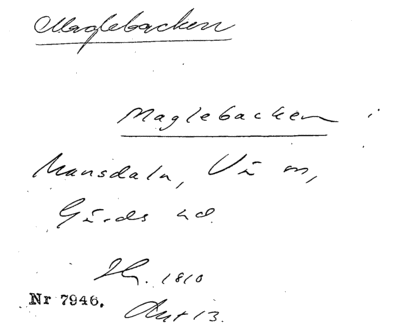 Maglebacken
Maglebacken i
Mansdala, Vä sn,
Gärds hd.
1810
Nr 7946. Akt 13.